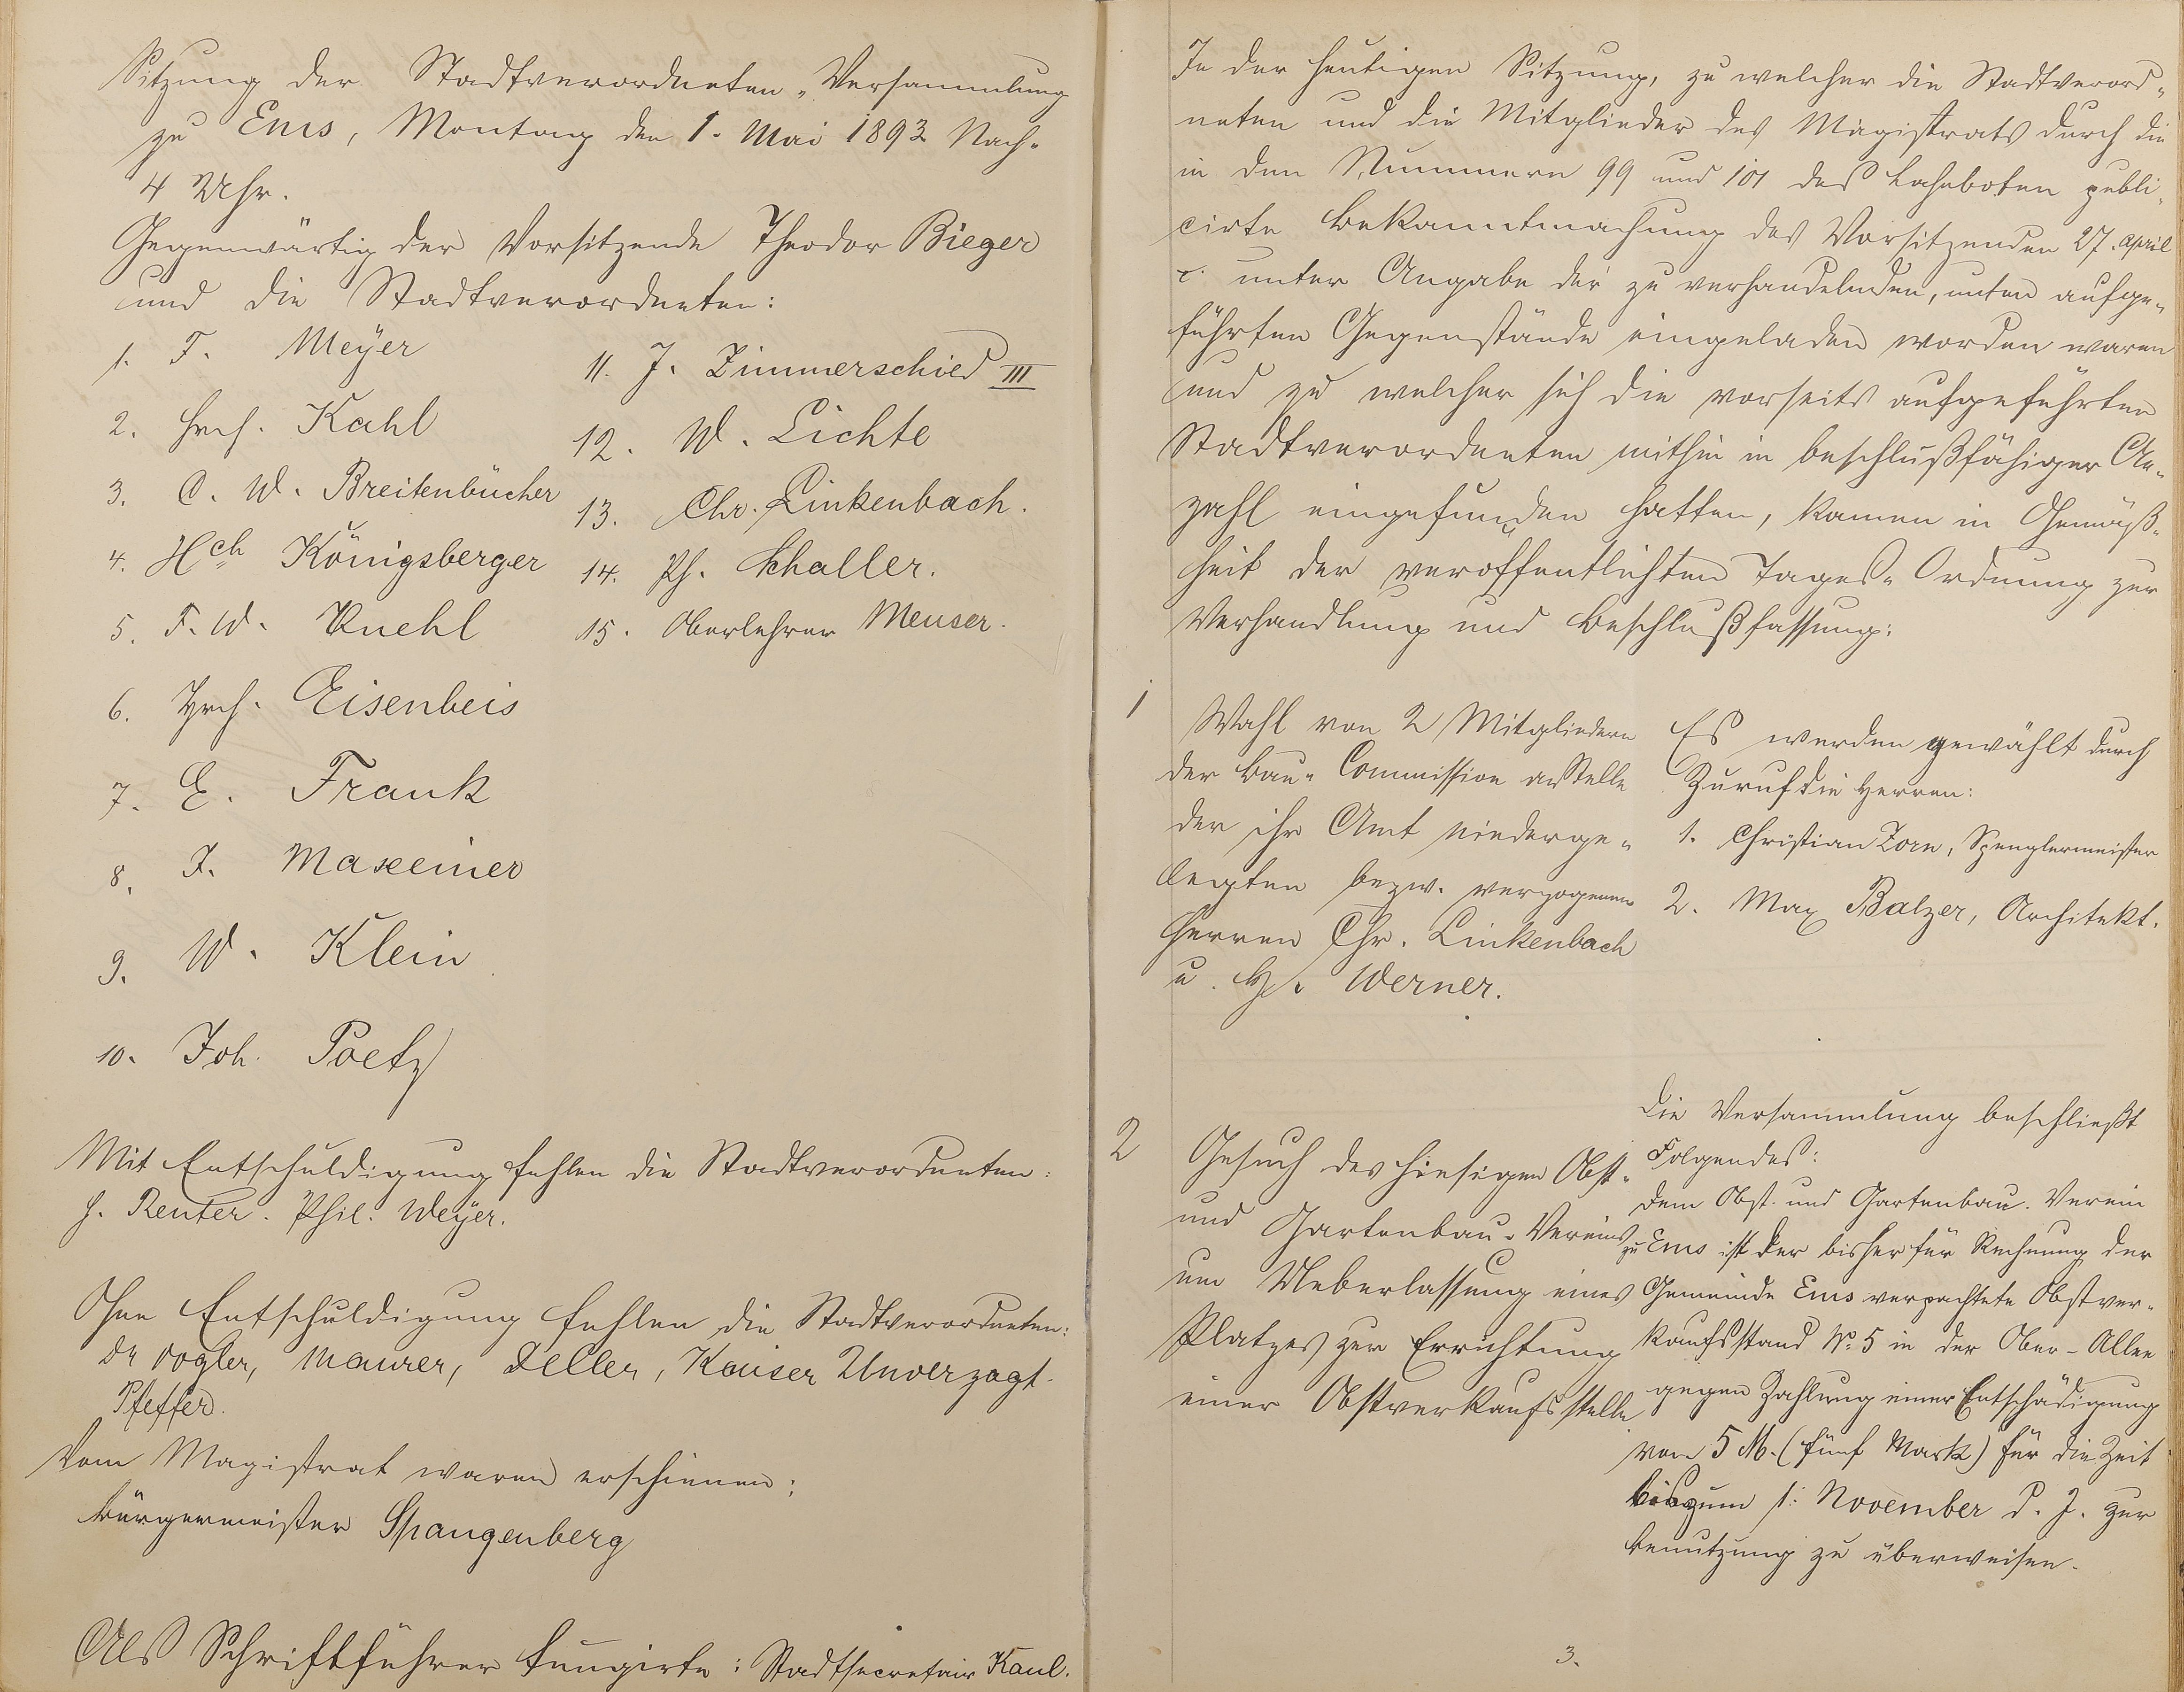 Sitzung der Stadtverordneten-Versammlung
zu Ems, Montag den 1. Mai 1893 Nach-
4 Uhr.
Gegenwärtig der Vorsitzende Theodor Bieger
und die Stadtverordneten:
1. F. Meyer
2. Hrch. Kahl
3. C. W. Breitenbücher
4. Hch Königsberger
5. F. W. Ruehl
6. Hrch. Eisenbeis
7. E. Frank
8. J. Maxeiner
9. W. Klein
10. Joh. Poetz
11. J. Zimmerschied III
12. W. Lichte
13. Chr. Linkenbach.
14. Ph. Schaller.
15. Oberlehrer Meuser.
Mit Entschuldigung fehlen die Stadtverordneten:
H. Reuter. Phil. Weyer.
Ohne Entschuldigung fehlen die Stadtverordneten:
Dr Vogler, Maurer, Keller, Kaiser Unverzagt.
Pfeffer.
Vom Magistrat waren erschienen:
Bürgermeister Spangenberg
Als Schriftführer fungirte: Stadtsecretair Kaul.
In der heutigen Sitzung, zu welcher die Stadtverord-
neten und die Mitglieder des Magistrats durch die
in den Nummern 99 und 101 des Lahnboten publi-
cirte Bekanntmachung des Vorsitzenden 27. April
c. unter Angabe der zu verhandelnden, unten aufge-
führten Gegenstände eingeladen worden waren
und zu welcher sich die vorseits aufgeführten
Stadtverordneten mithin in beschlußfähiger An-
zahl eingefunden hatten, kamen in Gemäß-
heit der veröffentlichten Tages-Ordnung zur
Verhandlung und Beschlußfassung:
1
Wahl von 2 Mitgliedern
der Bau-Commission anstelle
der ihr Amt niederge-
legten bezw. verzogenen
Herren Chr. Linkenbach
u. H. Werner.
Es werden gewählt durch
Zuruf die Herren:
1. Christian Zorn, Spenglermeister
2. Max Balzer, Architekt.
2
Gesuch des hiesigen Obst-
und Gartenbau-Vereins
um Ueberlassung eines
Platzes zur Errichtung
einer Obstverkaufsstelle
Die Versammlung beschließt
Folgendes:
Dem Obst- und Gartenbau-Verein
zu Ems ist der bisher für Rechnung der
Gemeinde Ems verpachtete Obstver-
kaufsstand No. 5 in der Ober-Allee
gegen Zahlung einer Entschädigung
von 5 M. (fünf Mark) für die Zeit
bis zum 1. November d. J. zur
Benutzung zu überweisen.
3.